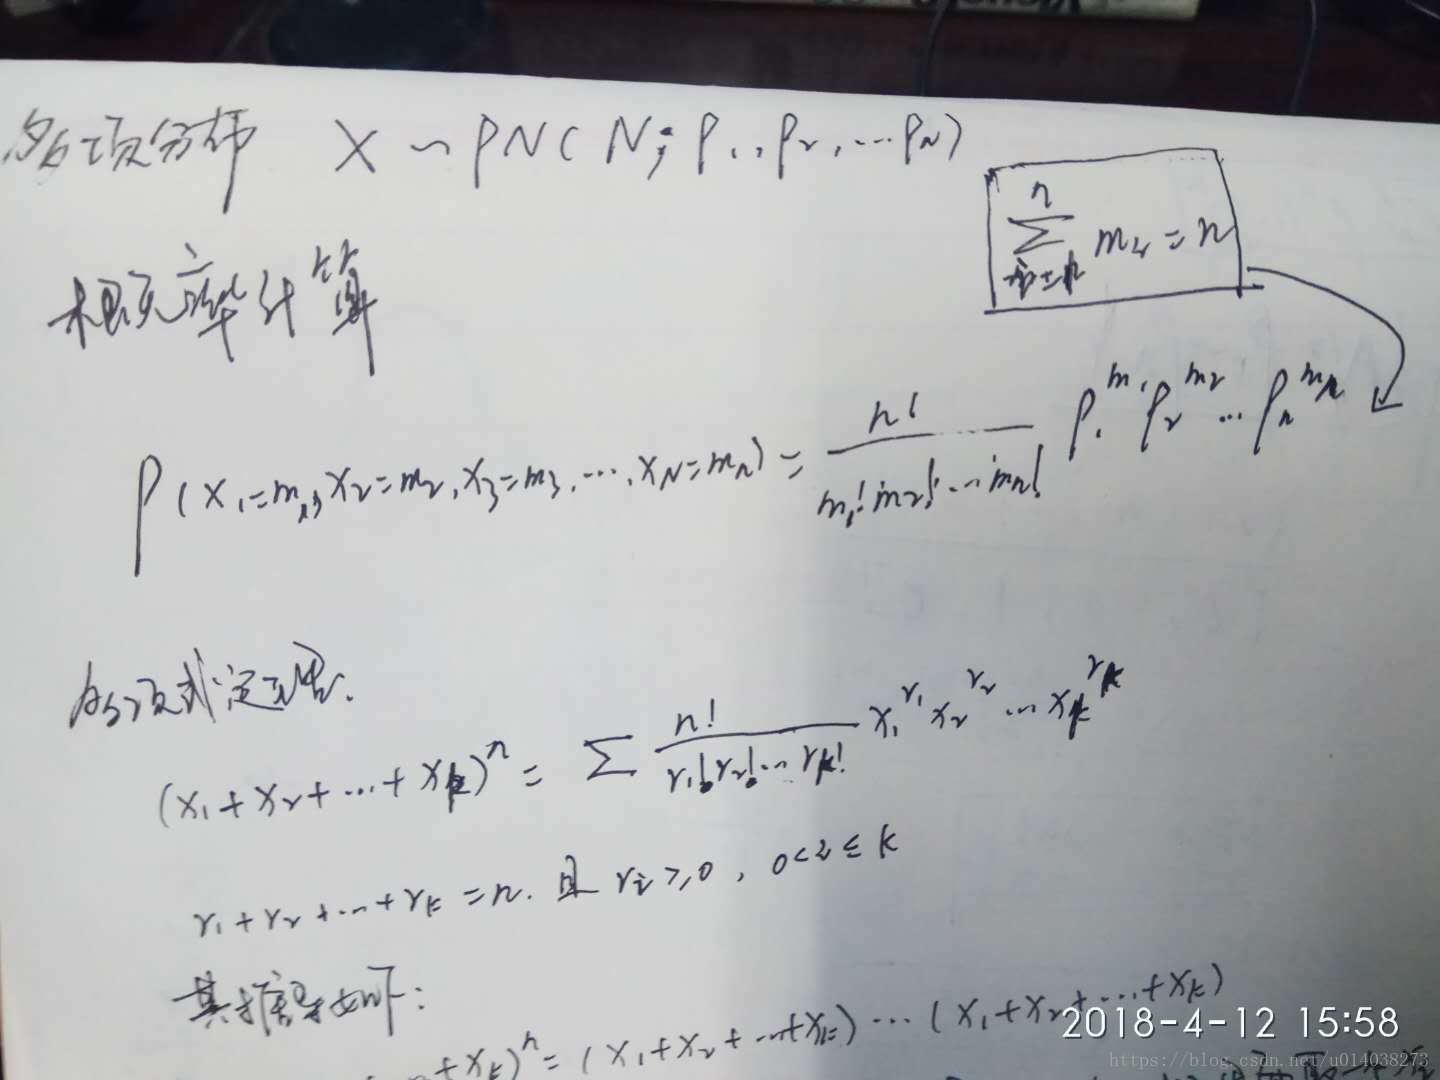 多项分布 X ~ PN( N; P₁, P₂, … Pₙ)
∑ⁿ mₖ = n
概率计算
P(X₁=m₁, X₂=m₂, X₃=m₃, …, X_N=mₙ) = n! / (m₁! m₂! … mₙ!) P₁^m₁ P₂^m₂ … Pₙ^mₙ
多项式定理.
(x₁+x₂+…+xₖ)ⁿ = ∑ n! / (r₁! r₂! … rₖ!) x₁^r₁ x₂^r₂ … xₖ^rₖ
r₁+r₂+…+rₖ=n. 且 rᵢ≥0, 0<i≤k
其推导如下:
+xₖ)ⁿ = (x₁+x₂+…+xₖ) … (x₁+x₂+…+xₖ)
2018-4-12 15:58
https://blog.csdn.net/u014038273